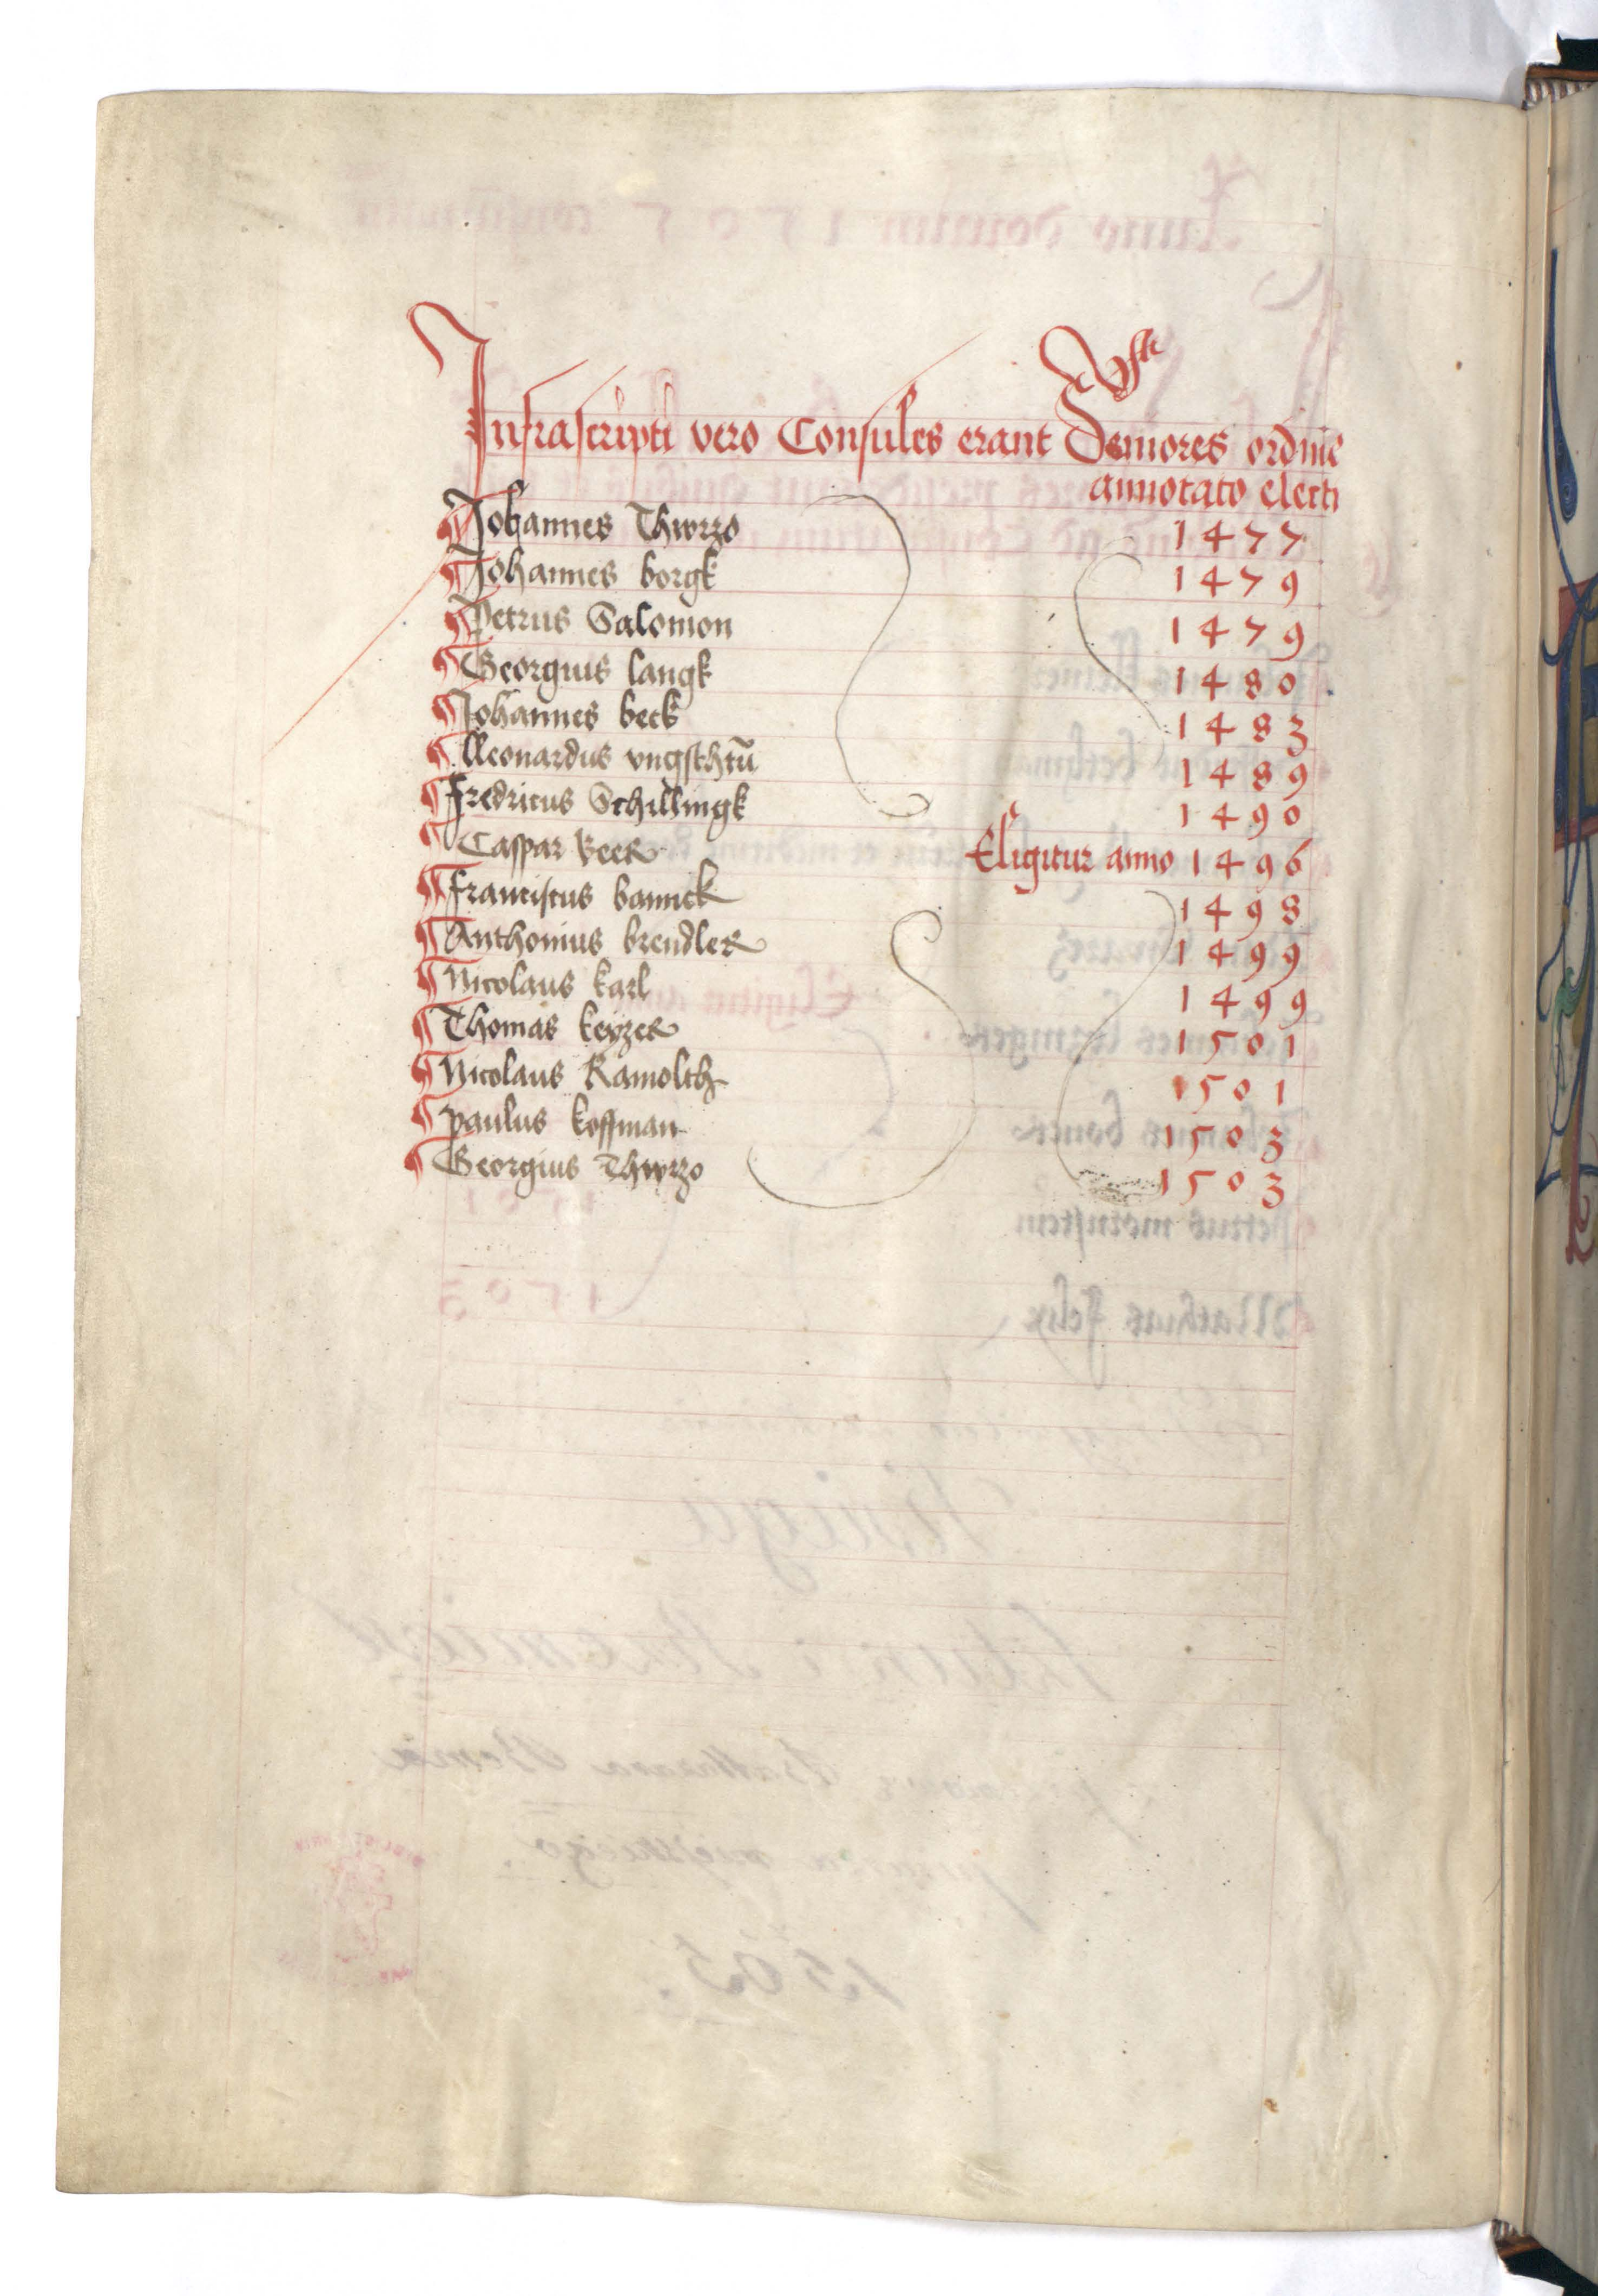 Infrascripti vero Consules erant Seniores ordine
annotato electi
Johannes Thwrzo 1477
Johannes borgk 1479
Petrus Salomon 1479
Georgius langk 1480
Johannes beck 1483
Leonardus vngsthtū 1489
Fredricus Schillingk 1490
Caspar Beer Eligitur anno 1496
Franciscus bannck 1498
Anthonius brendler 1499
Nicolaus karl 1499
Thomas keyzer 1501
Nicolaus Kamolth 1501
paulus koffman 1503
Georgius Thwrzo 1503